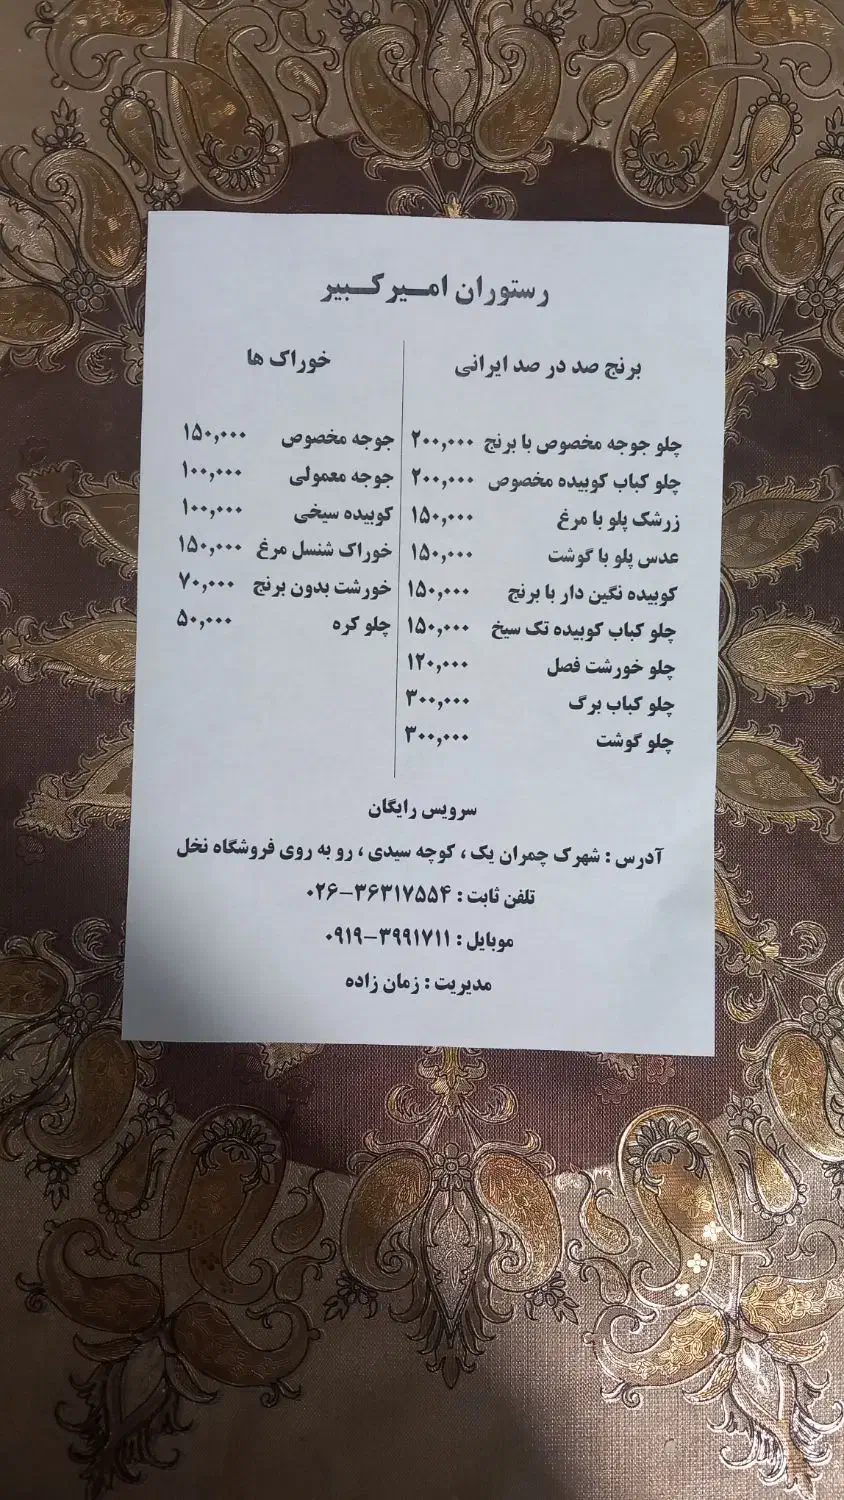 رستوران امـــیر کـــبیر
برنج صد در صد ایرانی
چلو جوجه مخصوص با برنج ۲۰۰,۰۰۰
چلو کباب کوبیده مخصوص ۲۰۰,۰۰۰
زرشک پلو با مرغ ۱۵۰,۰۰۰
عدس پلو با گوشت ۱۵۰,۰۰۰
کوبیده نگین دار با برنج ۱۵۰,۰۰۰
چلو کباب کوبیده تک سیخ ۱۵۰,۰۰۰
چلو خورشت فصل ۱۲۰,۰۰۰
چلو کباب برگ ۳۰۰,۰۰۰
چلو گوشت ۳۰۰,۰۰۰
خوراک ها
جوجه مخصوص ۱۵۰,۰۰۰
جوجه معمولی ۱۰۰,۰۰۰
کوبیده سیخی ۱۰۰,۰۰۰
خوراک شنسل مرغ ۱۵۰,۰۰۰
خورشت بدون برنج ۷۰,۰۰۰
چلو کره ۵۰,۰۰۰
سرویس رایگان
آدرس : شهرک چمران یک ، کوچه سیدی ، رو به روی فروشگاه نخل
تلفن ثابت : ۳۶۳۱۷۵۵۴-۰۲۶
موبایل : ۳۹۹۱۷۱۱-۰۹۱۹
مدیریت : زمان زاده